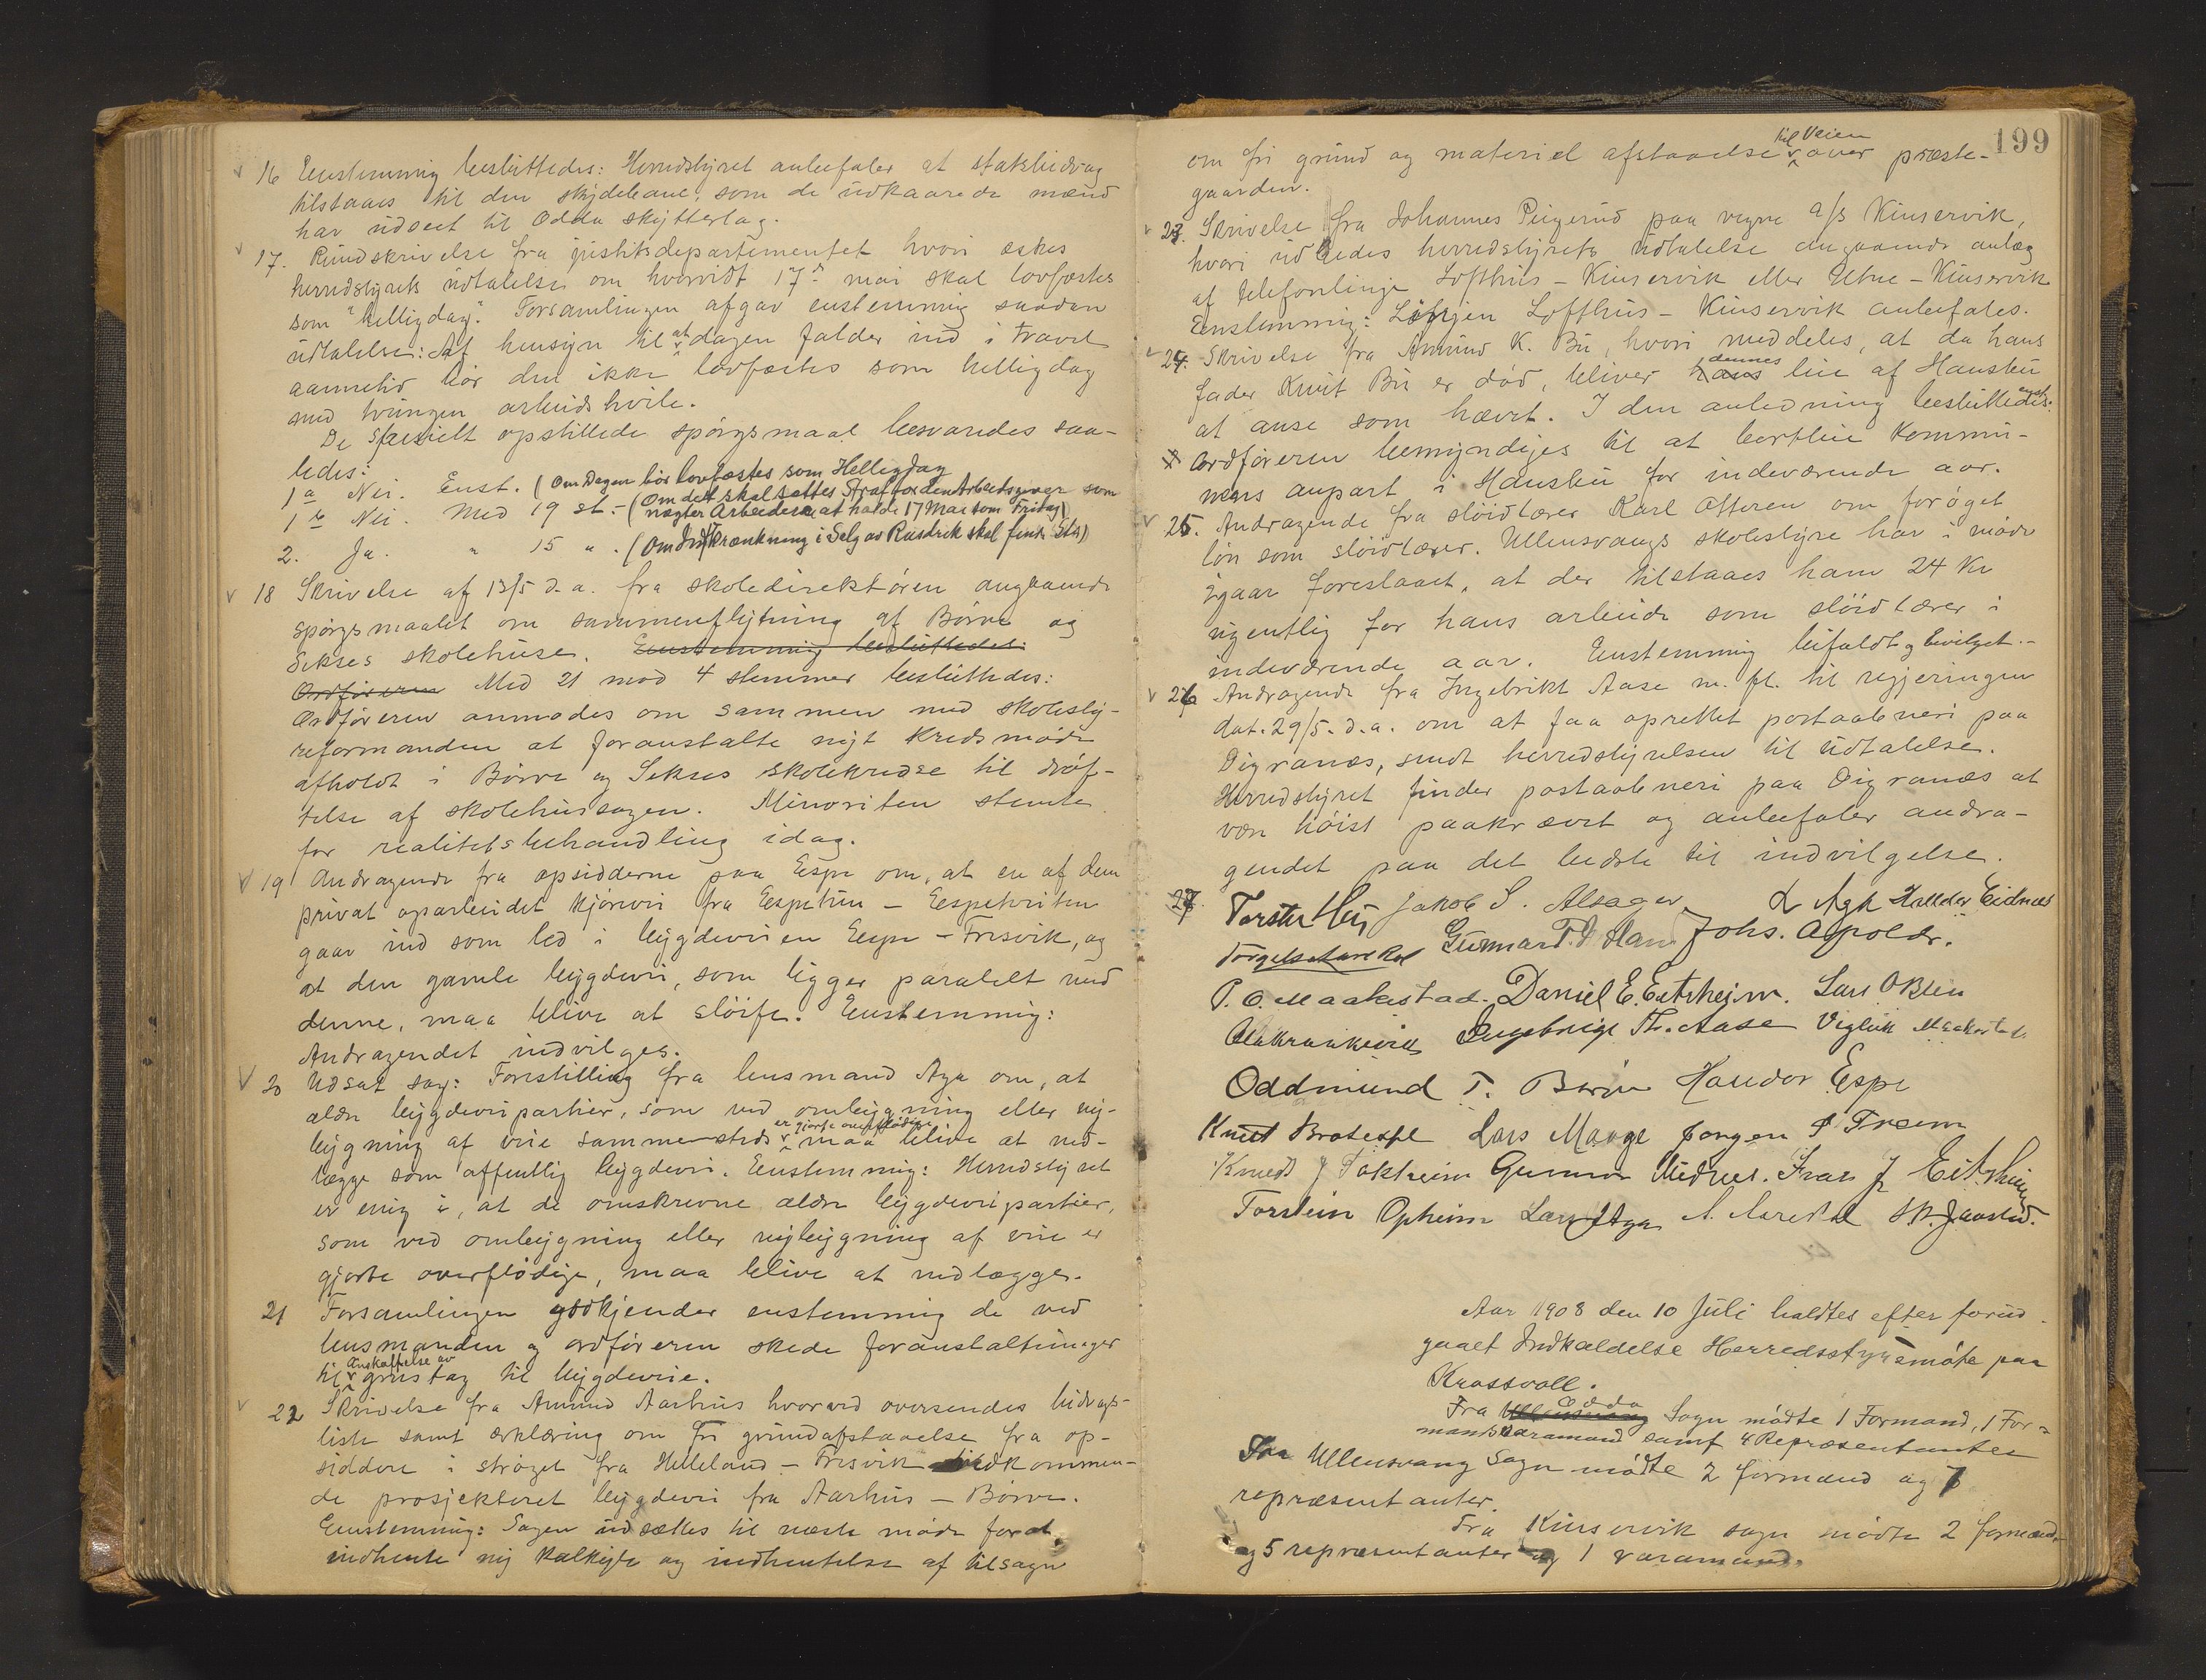 16 Eenstemmig besluttedes: Herredstyret anbefaler at statsbidrag
tilstaaes til den skydebane, som de udkaarede mænd
har udseet til Odda skytterlag.
17. Rundskrivelse fra justitsdepartementet hvori æskes
herredstyrets udtalelse om hvorvidt 17de mai skal lovfæstes
som "helligdag". Forsamlingen afgav enstemmig saadan
udtalelse: Af hensyn til at dagen falder ind i travel
aannetid bör den ikke lovfæstes som helligdag
med tvungen arbeidshvile.
De specielt opstillede spörgsmaal besvaredes saa-
ledes:
1 a Nei. Enst. (Om Dagen bör lovfæstes som Helligdag
1 b Nei. Med 19 st. - (Om det skal sættes Straf for den Arbeidsgiver som
nægter Arbeidere at holde 17 Mai som Fridag)
2. Ja. " 15 ". (Om Indskrænkning i Salg av Rusdrik skal finde Sted)
18 Skrivelse af 13/5 d. a. fra skoledirektören angaaende
spörgsmaalet om sammenflytning af Börve og
Sekses skolehuse. Eenstemmig besluttedes:
Ordföreren Med 21 mod 4 stemmer besluttedes:
Ordföreren anmodes om sammen med skolesty-
reformanden at foranstalte nyt kredsmöde
afholdt i Börve og Sekses skolekredse til dröf-
telse af skolehussagen. Minoriteten stemte
for realitetsbehandling idag.
19 Andragende fra opsidderne paa Espe om, at en af dem
privat oparbeidet kjörevei fra Espetun - Espekviten
gaar ind som led i bygdeveien Espe - Fresvik, og
at den gamle bygdevei, som ligger paralelt med
denne, maa blive at slöife. Eenstemmig:
Andragendet indvilges.
20 Udsat sag: Forestilling fra lensmand Aga om, at
ældre bygdeveipartier, som ved ombygning eller ny-
bygning af veie sammesteds er gjorte overflödige maa blive at ned-
lægge som offentlig bygdevei. Eenstemmig: Herredstyret
er enig i, at de omskrevne ældre bygdeveipartier,
som ved ombygning eller nybygning af veie er
gjorte overflödige, maa blive at nedlægges.
21 Forsamlingen godkjender enstemmig de ved
lensmanden og ordföreren skede foranstaltninger
til anskaffelse av grustag til bygdeveie.
22 Skrivelse fra Amund Aarhus hvorved oversendes bidrags-
liste samt erklæring om fri grundafstaaelse fra op-
siddere i ströget fra Helleland - Fresvik vedkommen-
de prosjekteret bygdevei fra Aarhus - Börve.
Eenstemmig: Sagen udsættes til næste möde for at
indhente ny kalkyle og indhentelse af tilsagn
199
om fri grund og materiel afstaaelse til Veien over præste-
gaarden.
23. Skrivelse fra Johannes Pügerud paa vegne a/s Kinservik,
hvori udbedes herredstyrets udtalelse angaaende anlæg
af telefonlinje Lofthus - Kinservik eller Utne - Kinservik
Eenstemmig: Linjen Lofthus - Kinservik anbefales.
24. Skrivelse fra Amund K. Bu, hvori meddeles, at da hans
fader Knut Bu er död, bliver hans dennes leie af Hausbu
at anse som hævet. I den anledning besluttedes enst:
Ordföreren bemyndiges til at bortleie kommu-
nens anpart i Hausbu for indeværende aar.
25. Andragende fra slöidlærer Karl Otteren om foröget
lön som slöidlærer. Ullensvangs skolestyre har i möde
igaar foreslaaet, at der tilstaaes ham 24 Kr
ugentlig for hans arbeide som slöidlærer i
indeværende aar. Eenstemmig bifaldt og bevilget.-
26 Andragende fra Ingebrikt Aase m. fl. til regjeringen
dat. 29/5. d. a. om at faa oprettet postaabneri paa
Digranæs, sendt herredstyrelsen til udtalelse.
Herredstyret finder postaabneri paa Digranæs at
være höist paakrævet og anbefaler andra-
gendet paa det bedste til indvilgelse.
27. Jakob S. Alsager. L Aga Halldor Eidnes
Torgels Aarekol Gunnar T. Johs. Apold.
P. O. Maakestad. Daniel E. Eitrheim. Lars O Bleie
Ingebrigt Th. Aase Viglik Maakestad
Oddmund T. Börve Haldor Espe
Knut Brotespe Lars Mauge Jörgen Freim
Knud J Tokheim Gunnar Midnes. Ivar J Eitrheim
Torstein Opheim Lars Aga
Aar 1908 den 10 Juli holdtes efter forud
gaaet Indkaldelse Herredsstyremöte paa
Krossvoll.
Fra Ullensvang Odda Sogn mödte 1 Formand, 1 For-
mandsvaramand samt 4 Repræsentanter
Fra Ullensvang Sogn mödte 2 formænd og 7
repræsentanter.
Fra Kinservik sogn mödte 2 formænd.
og 5 repræsentanter og 1 varamand.